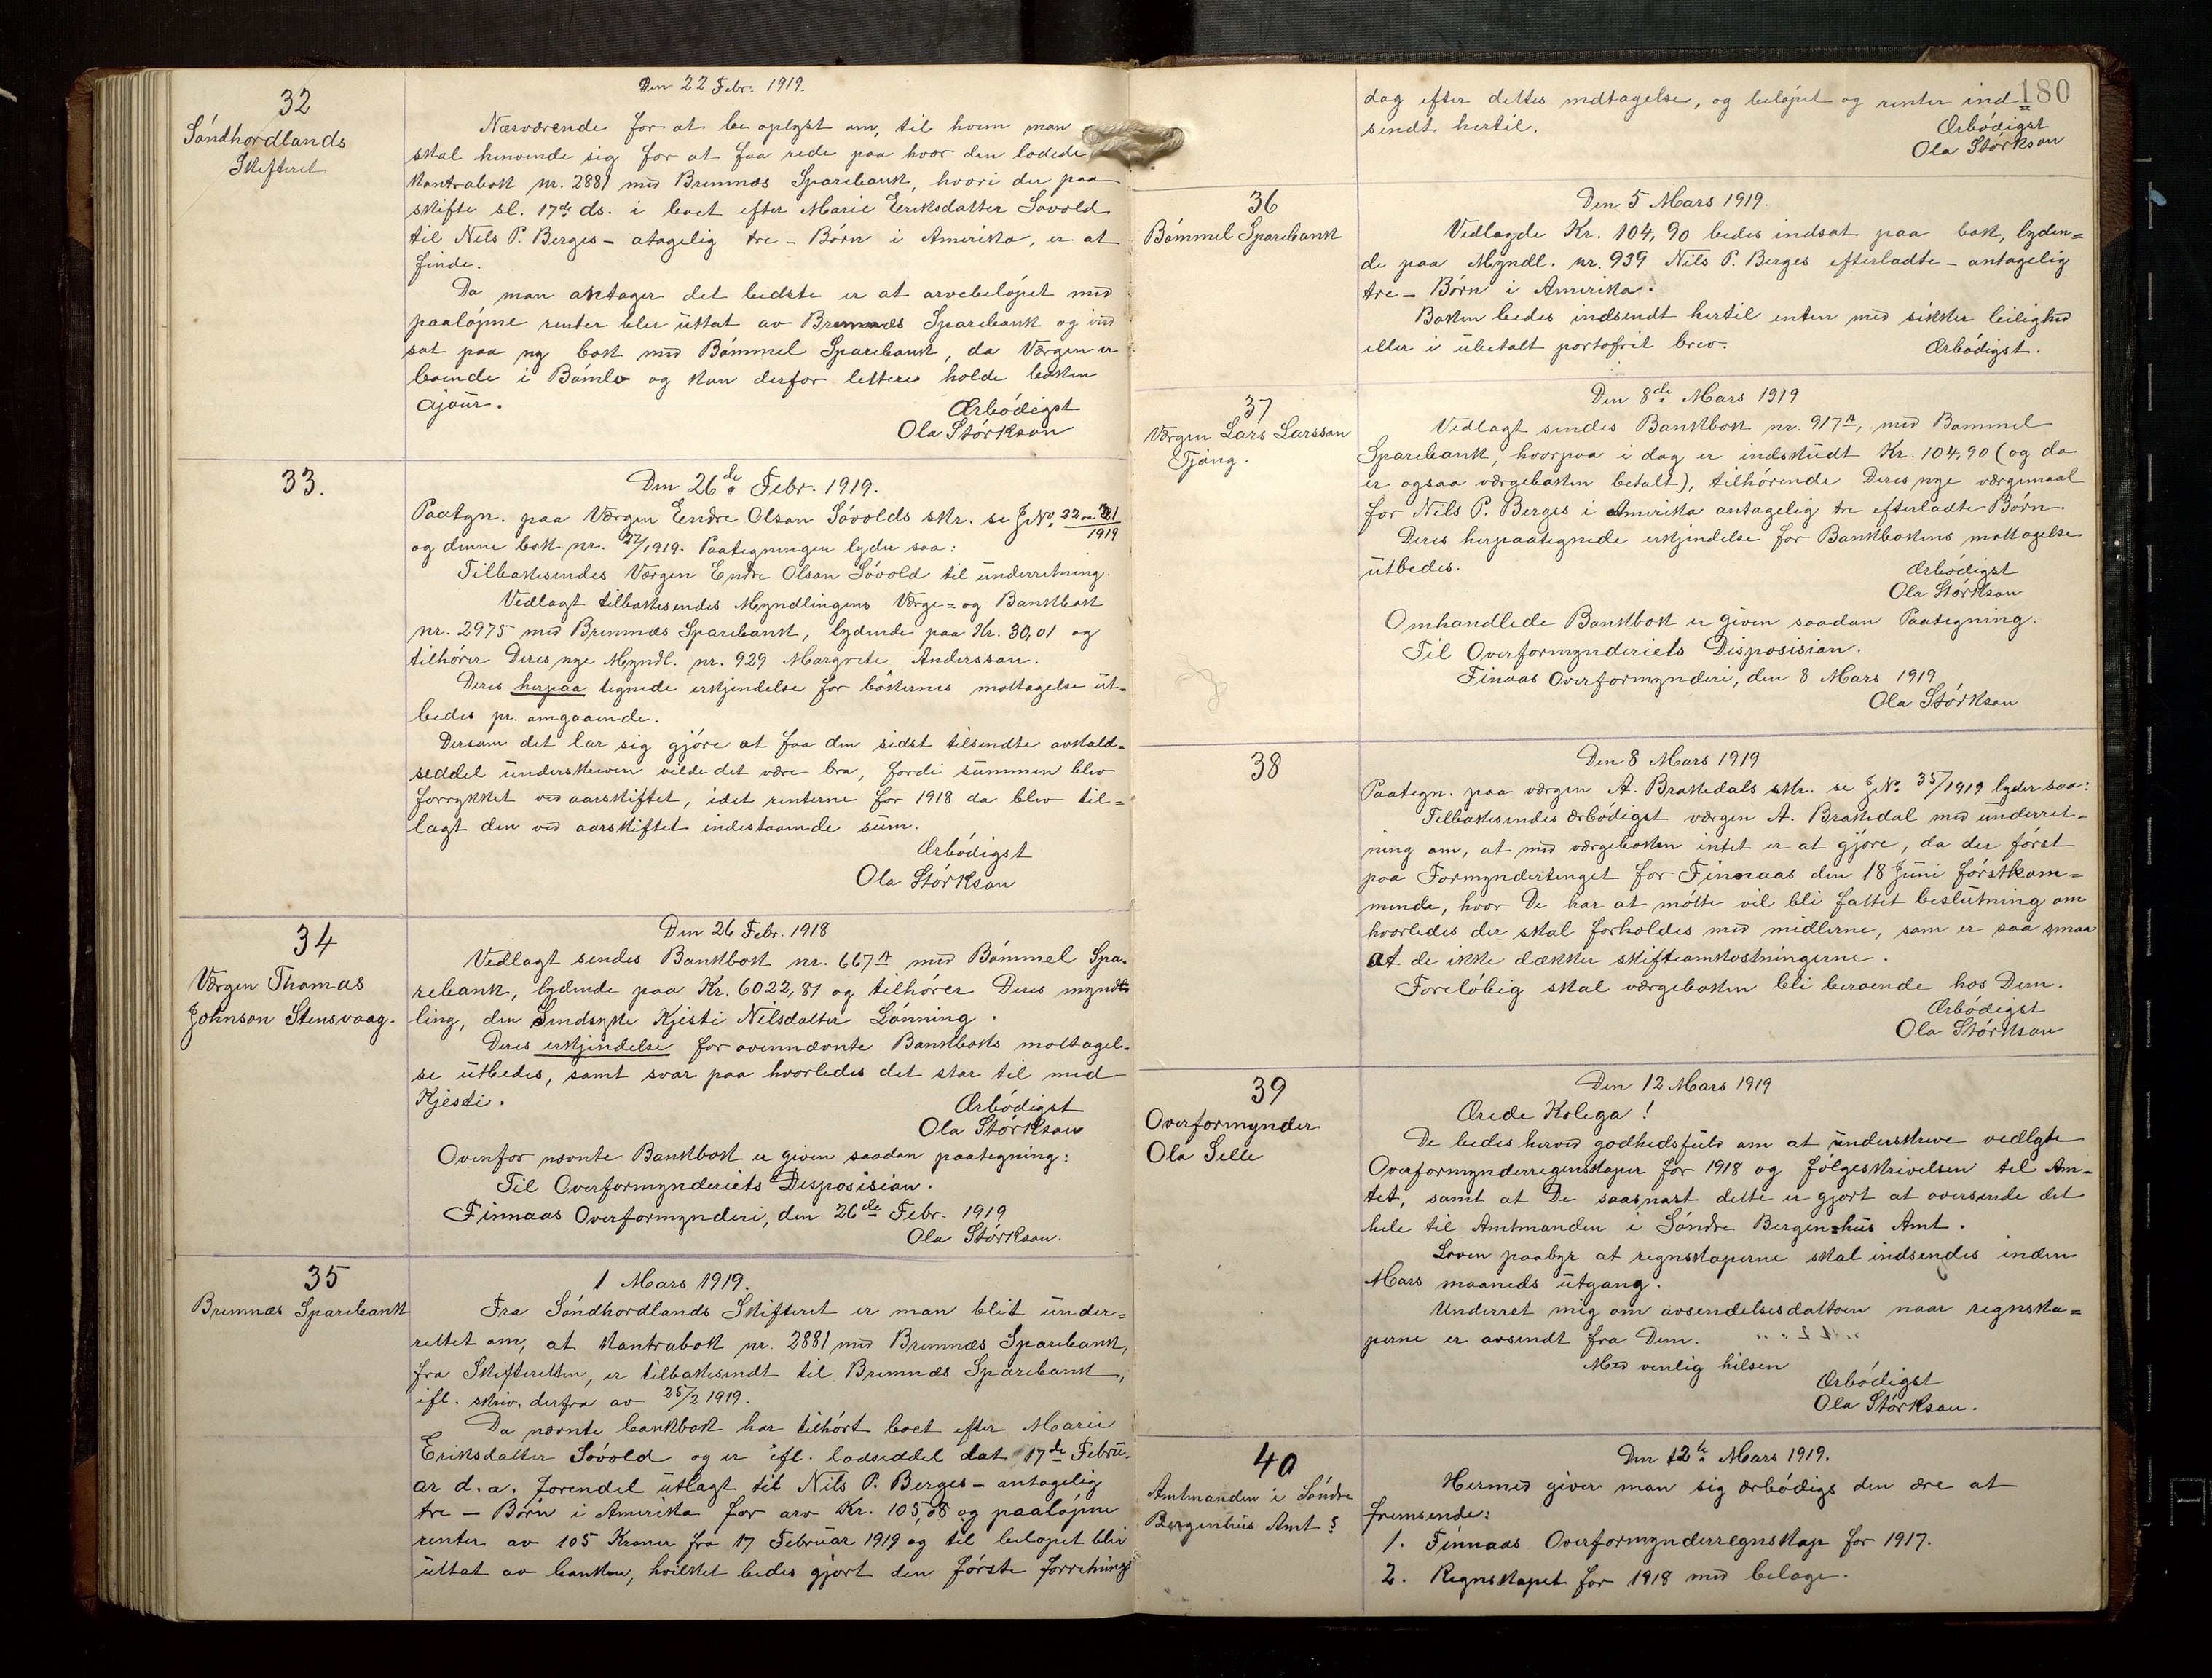 32
Søndhordlands
Skifteret
Den 22 Febr. 1919.
Nærværende for at be oplyst om, til hvem man
skal henvende sig for at faa rede paa hvor den lodede
Kontrabok nr. 2881 med Bremnæs Sparebank, hvori der paa
skifte sl. 17de ds. i boet efter Marie Eriksdatter Søvold
til Nels P. Berges - atagelig tre - Børn i Amerika, er at
finde.
Da man antager det bedste er at arvebeløpet med
paaløpne renter blev uttat av Bremnæs Sparebank og ind
sat paa ny bok med Bømmel Sparebank, da Værgen er
boende i Bømlo og kan derfor lettere holde boken
ajour.
Ærbødigst
Ola Størkson
33.
Den 26de Febr. 1919.
Paategn. paa Værgen Endre Olson Søvolds skr. se J.No. 22 og 31/1919
og denne bok nr. 22/1919. Paategningen lyder saa:
Tilbakesendes Værgen Endre Olson Søvold til underretning.
Vedlagt tilbakesendes Myndlingens Værge= og Bankbok
nr. 2975 med Bremnæs Sparebank, lydende paa Kr. 30,01 og
tilhører Deres nye Myndl. nr. 929 Margrete Andersson.
Deres herpaa tegnede erkjendelse for bøkernes mottagelse ut-
bedes pr. omgaaende.
Dersom det lar sig gjøre at faa den sidst tilsendte avkald-
seddel underskreven vilde det være bra, fordi summen blev
forrykket ved aarskiftet, idet renterne for 1918 da blev til=
lagt den ved aarskiftet indestaaende sum.
Ærbødigst
Ola Størkson
34
Værgen Thomas
Johnson Stensvaag.
Den 26 Febr. 1918
Vedlagt sendes Bankbok nr. 667A med Bømmel Spa-
rebank, lydende paa Kr. 6022,81 og tilhører Deres mynd
ling, den Sindsyke Kjesti Nilsdatter Lønning.
Deres erkjendelse for ovennævnte Bankboks mottagel-
se utbedes, samt svar paa hvorledes det star til med
Kjesti.
Ærbødigst
Ola Størkson
Ovenfor nævnte Bankbok er given saadan paategning:
Til Overformynderiets Disposision.
Finnaas Overformynderi, den 26de Febr. 1919
Ola Størkson.
35
Bremnæs Sparebank
1 Mars 1919.
Fra Søndhordlands Skifteret er man blit under=
rettet om, at Kontrabok nr. 2881 med Bremnæs Sparebank,
fra Skifteretten, er tilbakesendt til Bremnæs Sparebank,
ifl. skriv. derfra av 25/2 1919.
Da nævnte bankbok har tilhørt boet efter Marie
Eriksdatter Søvold og er ifl. lodseddel dat 17de Febru-
ar d. a. forendel utlagt til Nils P. Berges - antagelig
tre - Børn i Amerika for arv Kr. 105,58 og paaløpne
renter av 105 Kroner fra 17 Februar 1919 og til beløpet blir
uttat av banken, hvilket bedes gjort den første forretnings
180
dag efter dettes mdtagelse, og beløpet og renter ind
sendt hertil.
Ærbødigst
Ola Størkson
36
Bømmel Sparebank
Den 5 Mars 1919.
Vedlagde Kr. 104,90 bedes indsat paa bok, lyden=
de paa Myndl. nr. 939 Nils P. Berges efterladte - antagelig
tre - Børn i Amerika.
Boken bedes indsendt hertil enten med sikker leilighed
eller i ubetalt portofrit brev.
Ærbødigst.
37
Værgen Lars Larsson
Tjong.
Den 8de Mars 1919
Vedlagt sendes Bankbok nr. 917A, med Bømmel
Sparebank, hvorpaa i dag er indskudt Kr. 104,90 (og da
er ogsaa værgeboken betalt), tilhørende Deres nye værgemaal
for Nils P. Berges i Amerika antagelig tre efterladte Børn.
Deres herpaategnede erkjendelse for Bankbokens mottagelse
utbedes.
Ærbødigst
Ola Størkson
Omhandlede Bankbok er given saadan Paategning.
Til Overformynderiets Disposision.
Finaas Overformynderi, den 8 Mars 1919
Ola Størkson
38
Den 8 Mars 1919
Paategn. paa værgen A. Brakedals skr. se J.No. 35/1919 lyder saa:
Tilbakesendes ærbødigst værgen A. Brakedal med underret-
ning om, at med værgeboken intet er at gjøre, da der først
paa Formyndertinget for Finnaas den 18 Juni førstkom=
mende, hvor De har at møtte vil bli fattet beslutning om
hvorledes der skal forholdes med midlerne, som er saa smaa
at de ikke dækker skifteomkostningerne.
Foreløbig skal værgeboken bli beroende hos Dem.
Ærbødigst
Ola Størkson
39
Overformynder
Ola Selle
Den 12 Mars 1919
Ærede Kolega!
De bedes herved godhedsfuld om at underskrive vedlagte
Overformynderregnskaper for 1918 og følgeskrivelsen til Am-
tet, samt at De saasnart dette er gjort at oversende det
hele til Amtmanden i Søndre Bergenshus Amt.
Loven paabyr at regnskaperne skal indsendes inden
Mars maaneds utgang.
Underret mig om avsendelsesdattoen naar regnska=
perne er avsendt fra Dem.
Med venlig hilsen
Ærbødigst
Ola Størkson.
40
Amtmanden i Søndre
Bergenhus Amt
Den 12te Mars 1919.
Hermed giver man sig ærbødigs den ære at
fremsende:
1. Finnaas Overformynderregnskap for 1917.
2. Regnskapet for 1918 med belage.